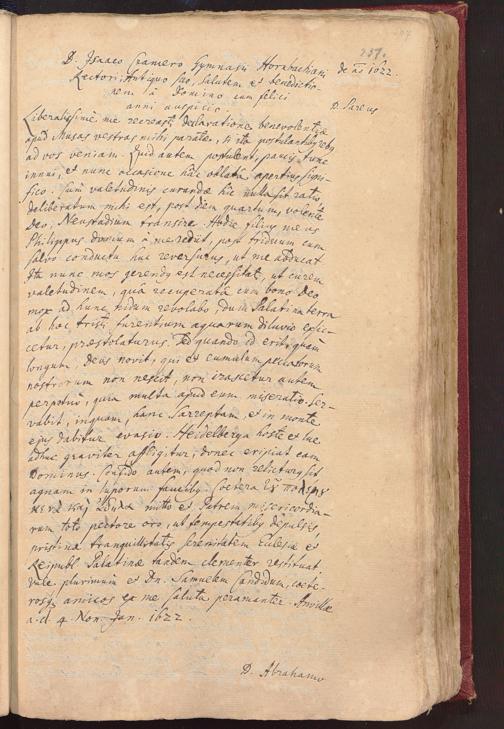 237.
D. Isaaco Cramero Gymnasii Hornbachiani
de ao 1622.
Rectori, Antiquo suo, salutem et benedictio-
nem à Domino cum felici
anni auspicio.
D. Pareus
Liberalissimè me recreasti declaratione benevolentiæ
apud Musas vestras mihi paratæ, si ita postulantib9 rebus
ad vos veniam. Quid autem postulent, paucis tunc
innui, et nunc occasione hac oblata apertius signi-
fico. Cum valetudinis curandæ hic nulla sit ratio
deliberatum mihi est, post diem quartum, volente
Deo, Neustadium transire. Hodie filius meus
Philippus domum à me rediit, post triduum cum
salvo conductu huc reversurus, ut me abducat.
Ita nunc mos gerendus est necessitati, ut curem
valetudinem, qua recuperata cum bono Deo
mox ad hunc nidum revolabo, dum Palatina terra
ab hoc tristi furentium aquarum diluvio
cetur, præstolaturus. Id quando erit, quam
longum, Deus novit, qui et cumulum peccatorum
nostrorum non nescit, non irascetur autem
perpetuò, quia multa apud eum miseratio. Ser-
vabit, inquam, hanc Sareptam, et in monte
ejus dabitur evasio. Heidelberga hoste et lue
adhuc graviter affligitur, donec eripiat eam
Dominus. Confido autem, quod non relicturus sit
agnam in luporum faucibus. Cætera
mitto et Patrem misericordia-
rum toto pectore oro, ut tempestatibus depulsis
pristinæ tranquillitatis serenitatem Ecclesiæ et
Reipubl. Palatinæ tandem clementer restituat.
Vale plurimum et Dn. Samuelem Candidum, cæte-
rosq3 amicos ex me saluta peramanter. Anvillæ
a.d. 4. Non. Jan. 1622.
D. Abrahamo